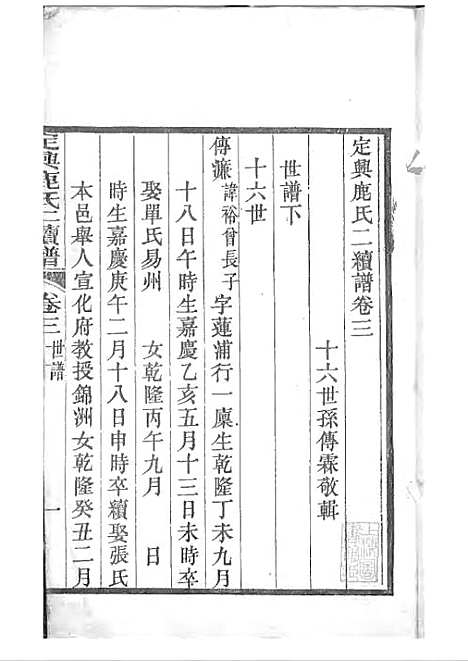 定興鹿氏二續譜卷三
十六世孫傳霖敬輯
世譜下
十六世
傳濂 諱裕曾長子 字蓮浦行一廩生乾隆丁未九月
十八日午時生嘉慶乙亥五月十三日未時卒
娶單氏易州 女乾隆丙午九月 日
時生嘉慶庚午二月十八日申時卒續娶張氏
本邑舉人宣化府教授錦洲女乾隆癸丑二月
定興鹿氏二續譜 卷三 世譜 一